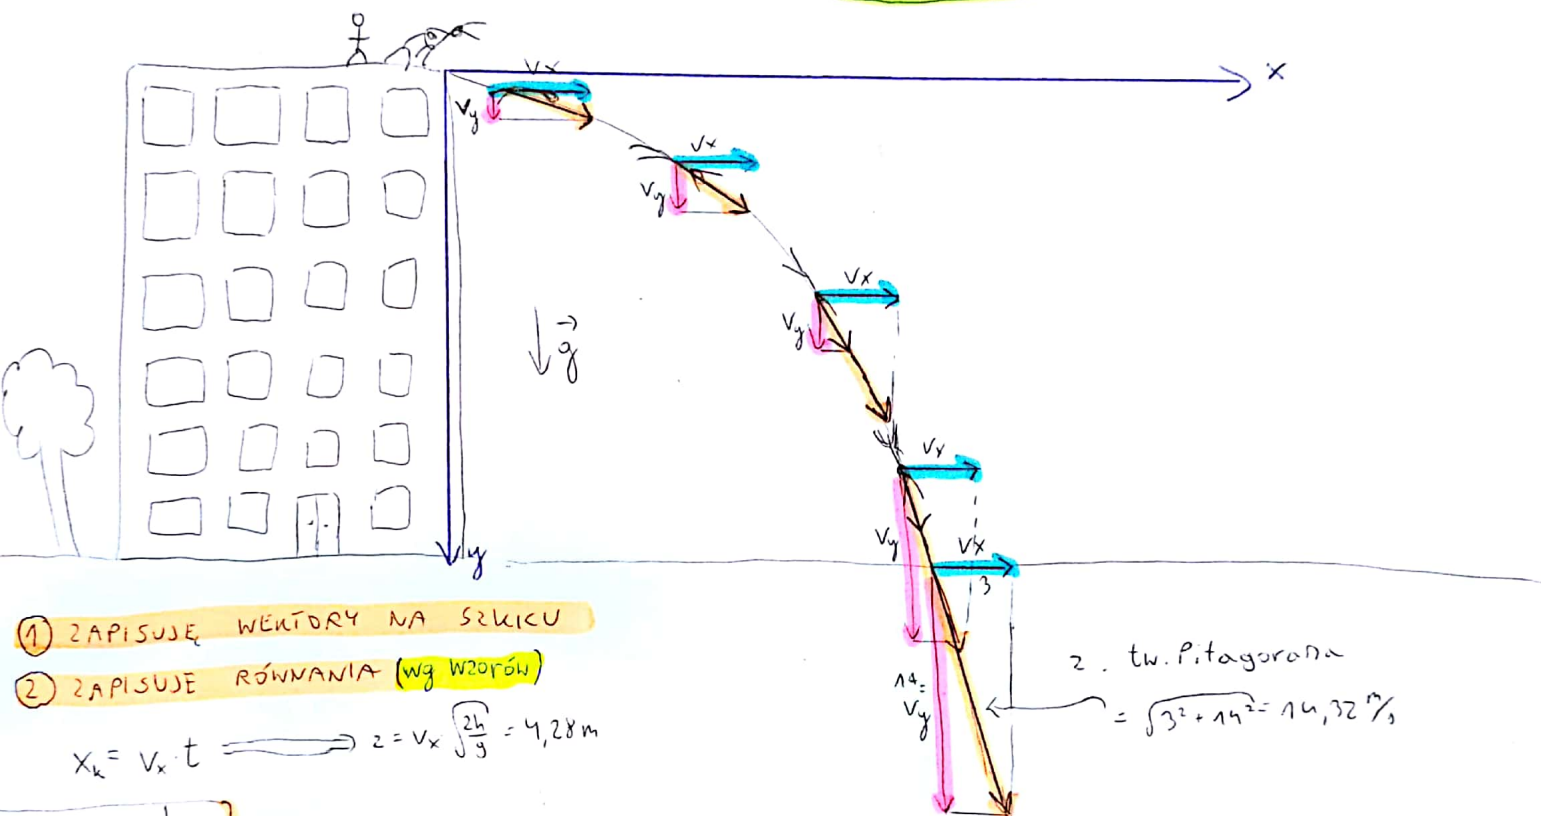 x
Vx
Vy
Vx
Vy
Vx
Vy
g
Vx
Vy
Vx
3
y
① ZAPISUJĘ WEKTORY NA SZKICU
② ZAPISUJE RÓWNANIA (wg wzorów)
xₖ = Vₓ · t ⟹ z = Vₓ √(2h/g) = 4,28 m
14 =
Vy
z. tw. Pitagorasa
= √(3² + 14²) = 14,32 m/s